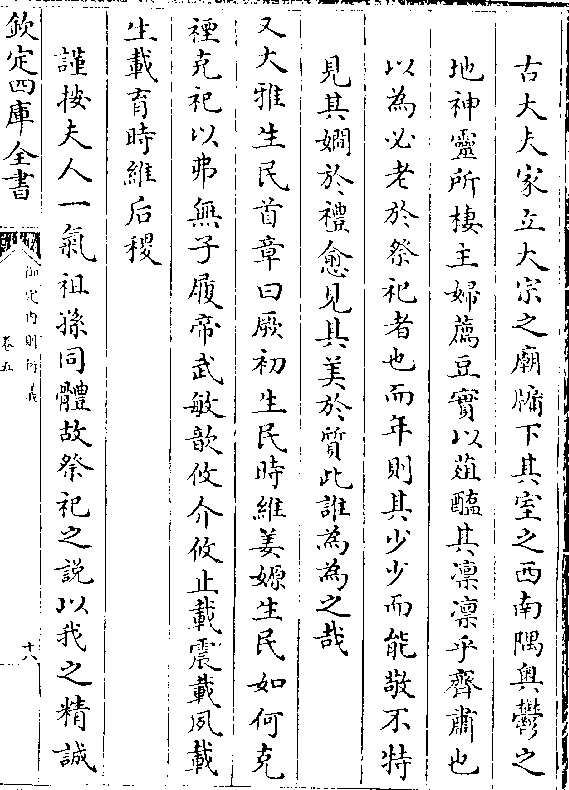 古大夫家立大宗之廟牖下其室之西南隅奥鬱之
地神靈所棲主婦薦豆實以葅醢其凛凛乎齊肅也
以為必老於祭祀者也而年則其少少而能敬不特
見其嫺於禮愈見其美於質此誰為為之哉
又大雅生民首章曰厥初生民時維姜嫄生民如何克
禋克祀以弗無子履帝武敏歆攸介攸止載震載夙載
生載育時維后稷
謹按夫人一氣祖孫同體故祭祀之説以我之精誠
欽定四庫全書
御定内則衍義
卷五
十六